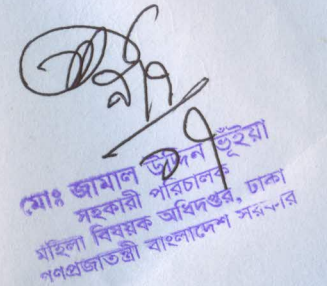 মোঃ জামাল উদ্দিন ভূঁইয়া
সহকারী পরিচালক
মহিলা বিষয়ক অধিদপ্তর, ঢাকা
গণপ্রজাতন্ত্রী বাংলাদেশ সরকার